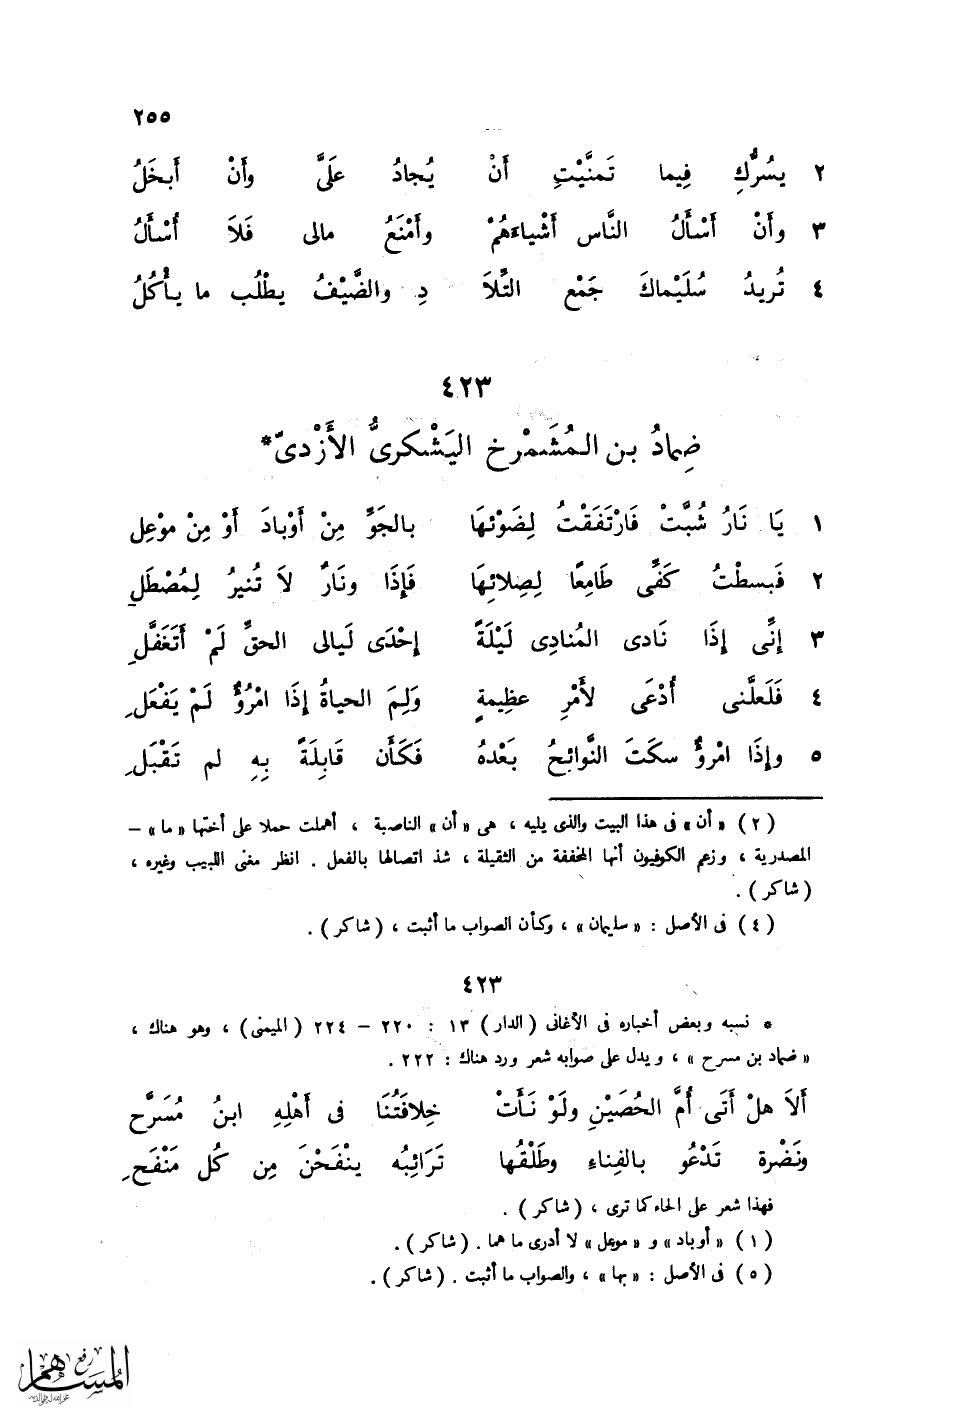 ٢٥٥
٢ يسُرُّكِ فِيما تَمنَّيْتِ أَنْ يُجادُ علَىَّ وأَنْ أَبخَلُ
٣ وأَنْ أَسْأَلُ النَّاس أَشْياءَهُمْ وأَمْنَعُ مالى فَلاَ أُسْأَلُ
٤ تُريدُ سُلَيْماكَ جَمْع التِّلاَ دِ والضَّيْفُ يطْلُب ما يأْكُلُ
٤٢٣
ضِمادُ بن المُشَمرْخ اليَشْكرىُّ الأَزْدىّ*
١ يَا نَارُ شُبَّتْ فَارْتَفَقْتُ لِضَوْئهَا بالجَوِّ مِنْ أَوْبادَ أَوْ مِنْ موْعِلِ
٢ فَبسطْتُ كَفِّى طَامِعًا لِصِلائِهَا فَإِذَا ونَارٌ لاَ تُنيرُ لِمُصْطَلِ
٣ إِنِّى إِذَا نَادى المُنادِى لَيْلَةً إِحْدَى لَيالى الحقِّ لَمْ أَتَغَفَّلِ
٤ فَلَعلَّنى أُدْعَى لأَمْرِ عظِيمةٍ وَلِمَ الحياةُ إِذَا امْرُؤٌ لَمْ يَفْعَلِ
٥ وإِذَا امْرؤٌ سكَتَ النَّوائحُ بَعْدهُ فَكَأَن قَابِلَةً بِهِ لم تَقْبَلِ
(٢) «أن» فى هذا البيت والذى يليه ، هى «أن» الناصبة ، أهملت حملا على أختها «ما» –
المصدرية ، وزعم الكوفيون أنها المخففة من الثقيلة ، شذ اتصالها بالفعل . انظر مغنى اللبيب وغيره ،
(شاكر) .
(٤) فى الأصل : «سليمان» ، وكأن الصواب ما أثبت ، (شاكر) .
٤٢٣
* نسبه وبعض أخباره فى الأغانى (الدار) ١٣ : ٢٢٠ – ٢٢٤ (الميمنى) ، وهو هناك ،
«ضماد بن مسرح» ، ويدل على صوابه شعر ورد هناك : ٢٢٢ .
أَلاَ هلْ أَتَى أُمَّ الحُصَيْنِ ولَوْ نَأَتْ خِلافَتُنَا فى أَهْلِهِ ابنُ مُسَرَّح
ونَضْرة تَدْعُو بالفِناءِ وطَلْقُها تَرَائِبُه ينْفَحْنَ مِن كُل مَنْفَحِ
فهذا شعر على الحاء كما ترى ، (شاكر) .
(١) «أوباد» و «موعل» لا أدرى ما هما . (شاكر) .
(٥) فى الأصل : «بها» ، والصواب ما أثبت . (شاكر) .